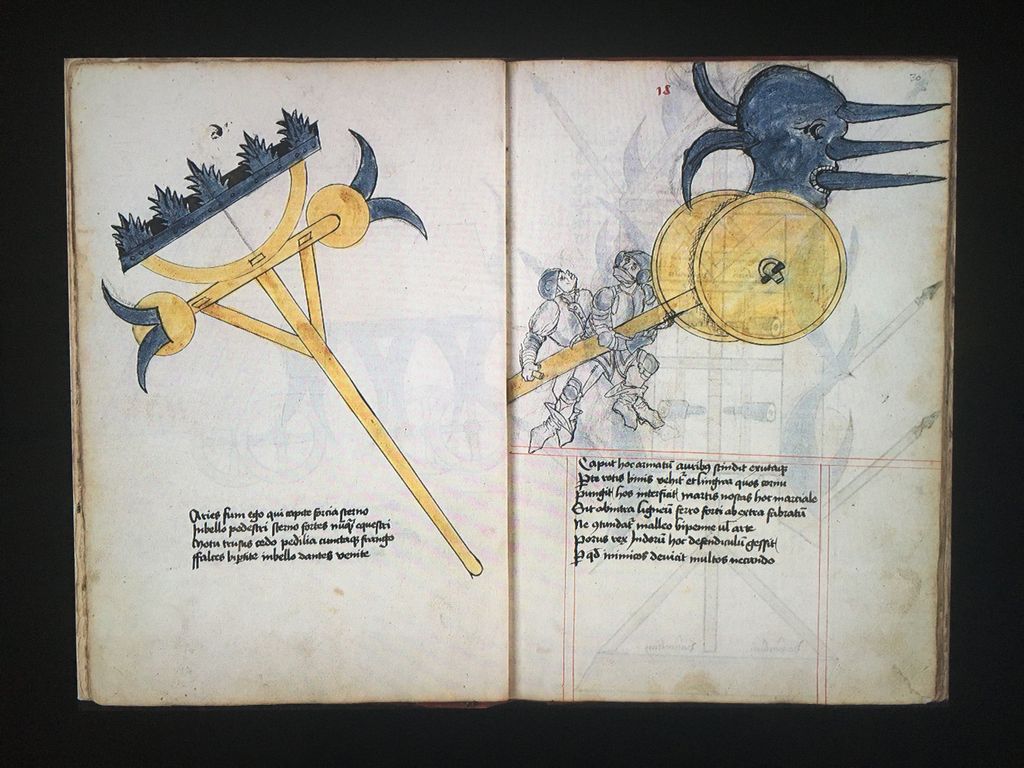 Aries sum ego qui capite forcia sterno
Inbello pedestri sterno fortes equestri
Motu trusus cedo pedilia cuntaq frango
ffalces biptite inbello dantes venite
18
30
Caput hoc armatū aurib9 scindit exutaq
rotis binis vehit et lingwa quos cornu
Pungit hos interficit martis nostas hoc marciale
Sit abintra ligneū ferro forti ab extra fabratū
Ne 9tundat malleo bipenne ul arte
Porus rex Indorū hoc defendiculū gessit
P qd inimicos deuicit multos necando